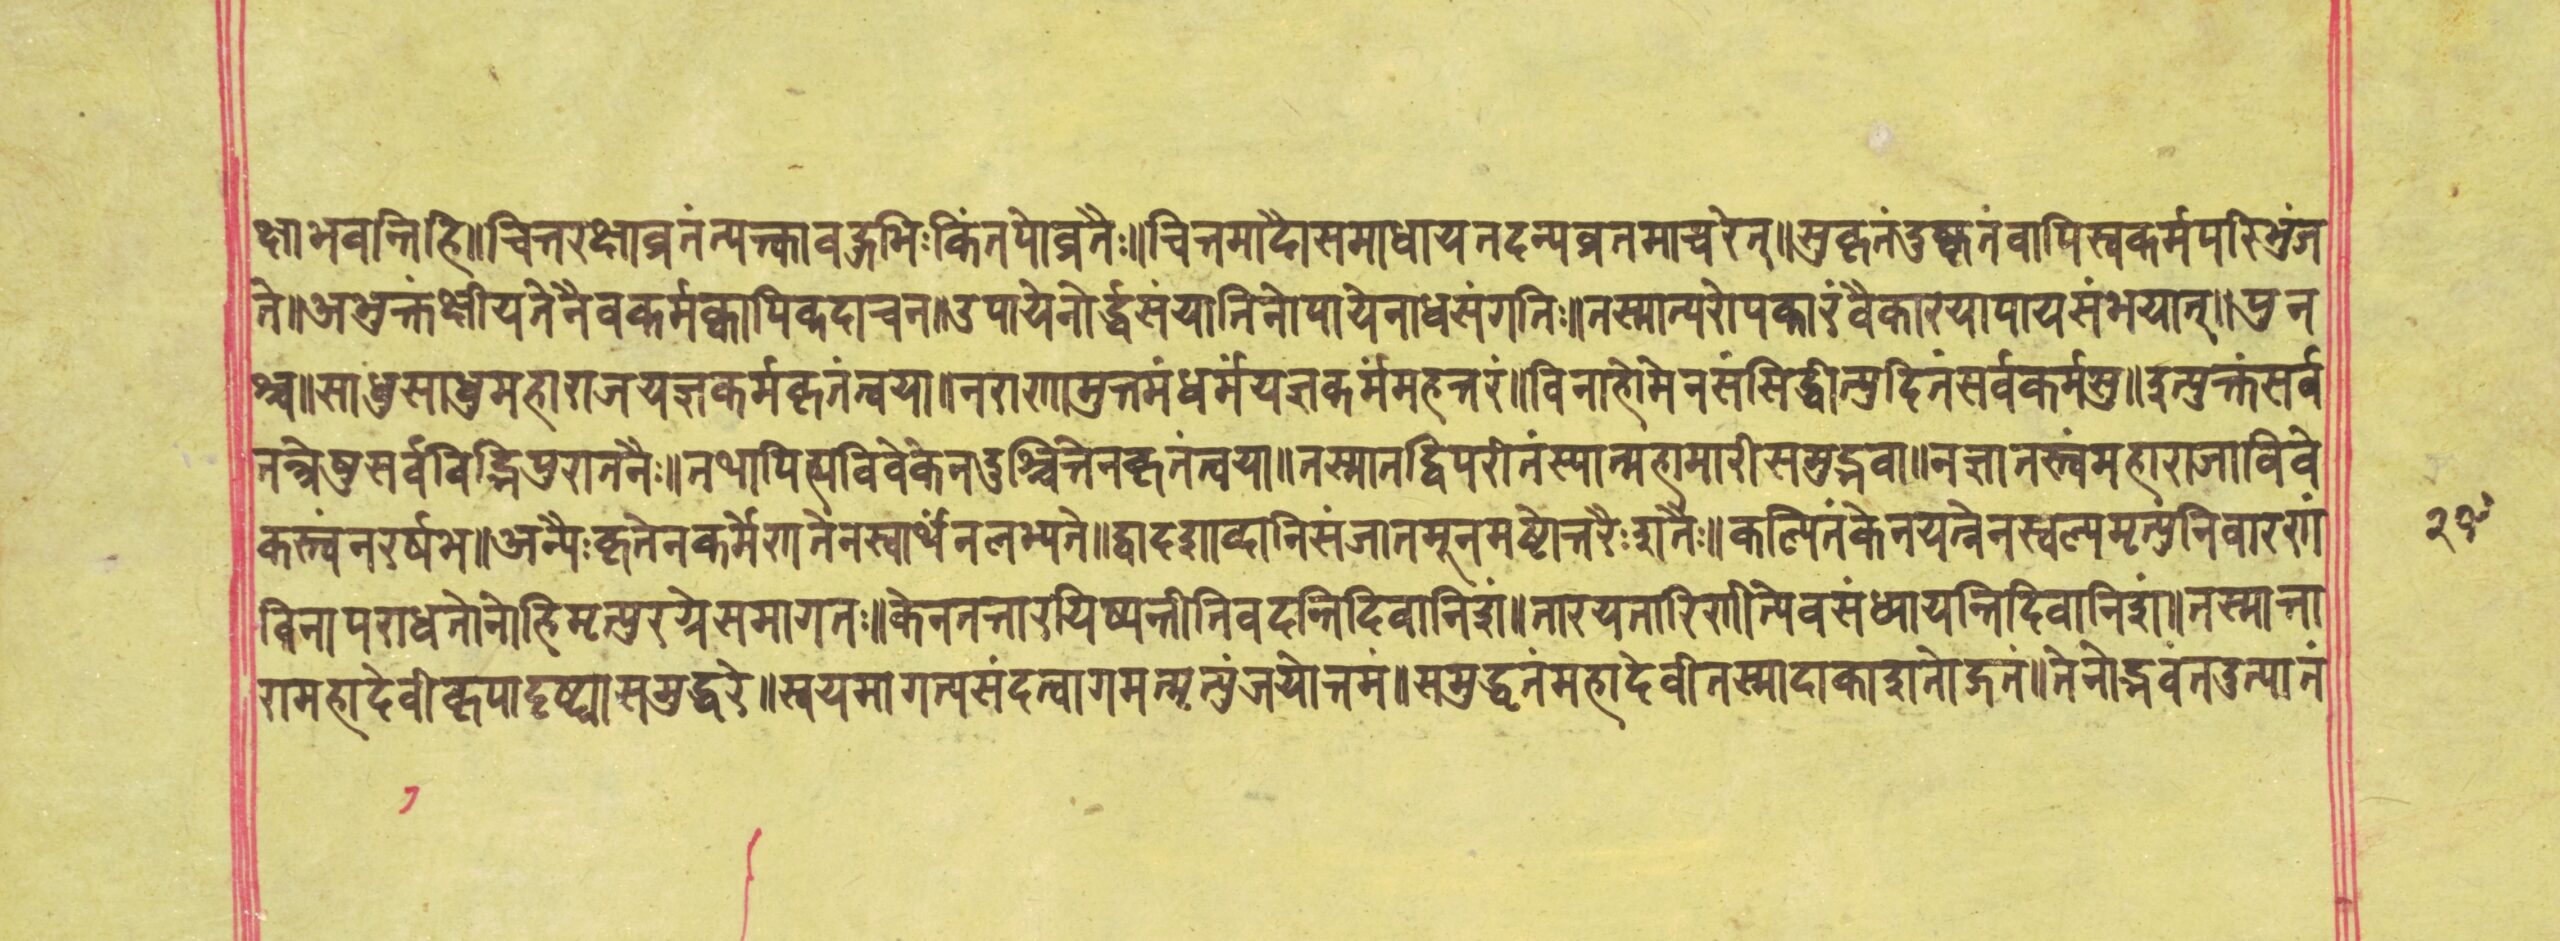 क्षाभवन्तिहि॥चित्तरक्षाव्रतंत्यक्त्वावहुभिःकिंतपोव्रतैः॥चित्तमादौसमाधायतदन्यव्रतमाचरेत्॥सुकृतंदुष्कृतंवापिस्वकर्मपरिभुंज
ते॥अभुक्तंक्षीयतेनैवकर्मक्वापिकदाचन॥उपायेनोर्द्ध्वसंयातिनोपायेनाधसंगतिः॥तस्मात्परोपकारंवैकारयापायसंभयात्॥पुन
श्च॥साधुसाधुमहाराजयज्ञकर्मकृतंत्वया॥नराणामुत्तमंधर्मंयज्ञकर्ममहत्तरं॥विनाहोमेनसंसिद्धीत्युदितंसर्वकर्मसु॥इत्युक्तंसर्व
तन्त्रेषुसर्वविद्भिपुरातनैः॥तथापित्यविवेकेनदुश्चित्तेनकृतंत्वया॥तस्मातद्विपरीतंस्यान्महामारीसमुद्भवा॥नज्ञानस्त्वंमहाराजाविवे
कस्त्वंनरर्षभ॥अन्यैःकृतेनकर्मेणतेनस्वार्थंनलभ्यते॥द्वादशाव्दानिसंजातमूनमष्टोत्तरैःशतैः॥कल्पितंकेनयत्नेनस्वल्पमृत्युंनिवारणं
विनापराधनोनोहिमृत्युरग्रेसमागतः॥केनतत्तारयिष्यन्तीतिवदन्तिदिवानिशं॥तारयतारिणीत्येवसंध्यायन्तिदिवानिशं॥तस्मात्ता
रामहादेवीकृपादृष्ट्यासमुद्धरे॥स्वयमागत्यसंदत्वागमत्मृत्युंजयोत्तमं॥समुद्धृतंमहादेवीतस्मादाकाशतोङ्गतं॥तेनोद्भवंतदुत्पातं
२९